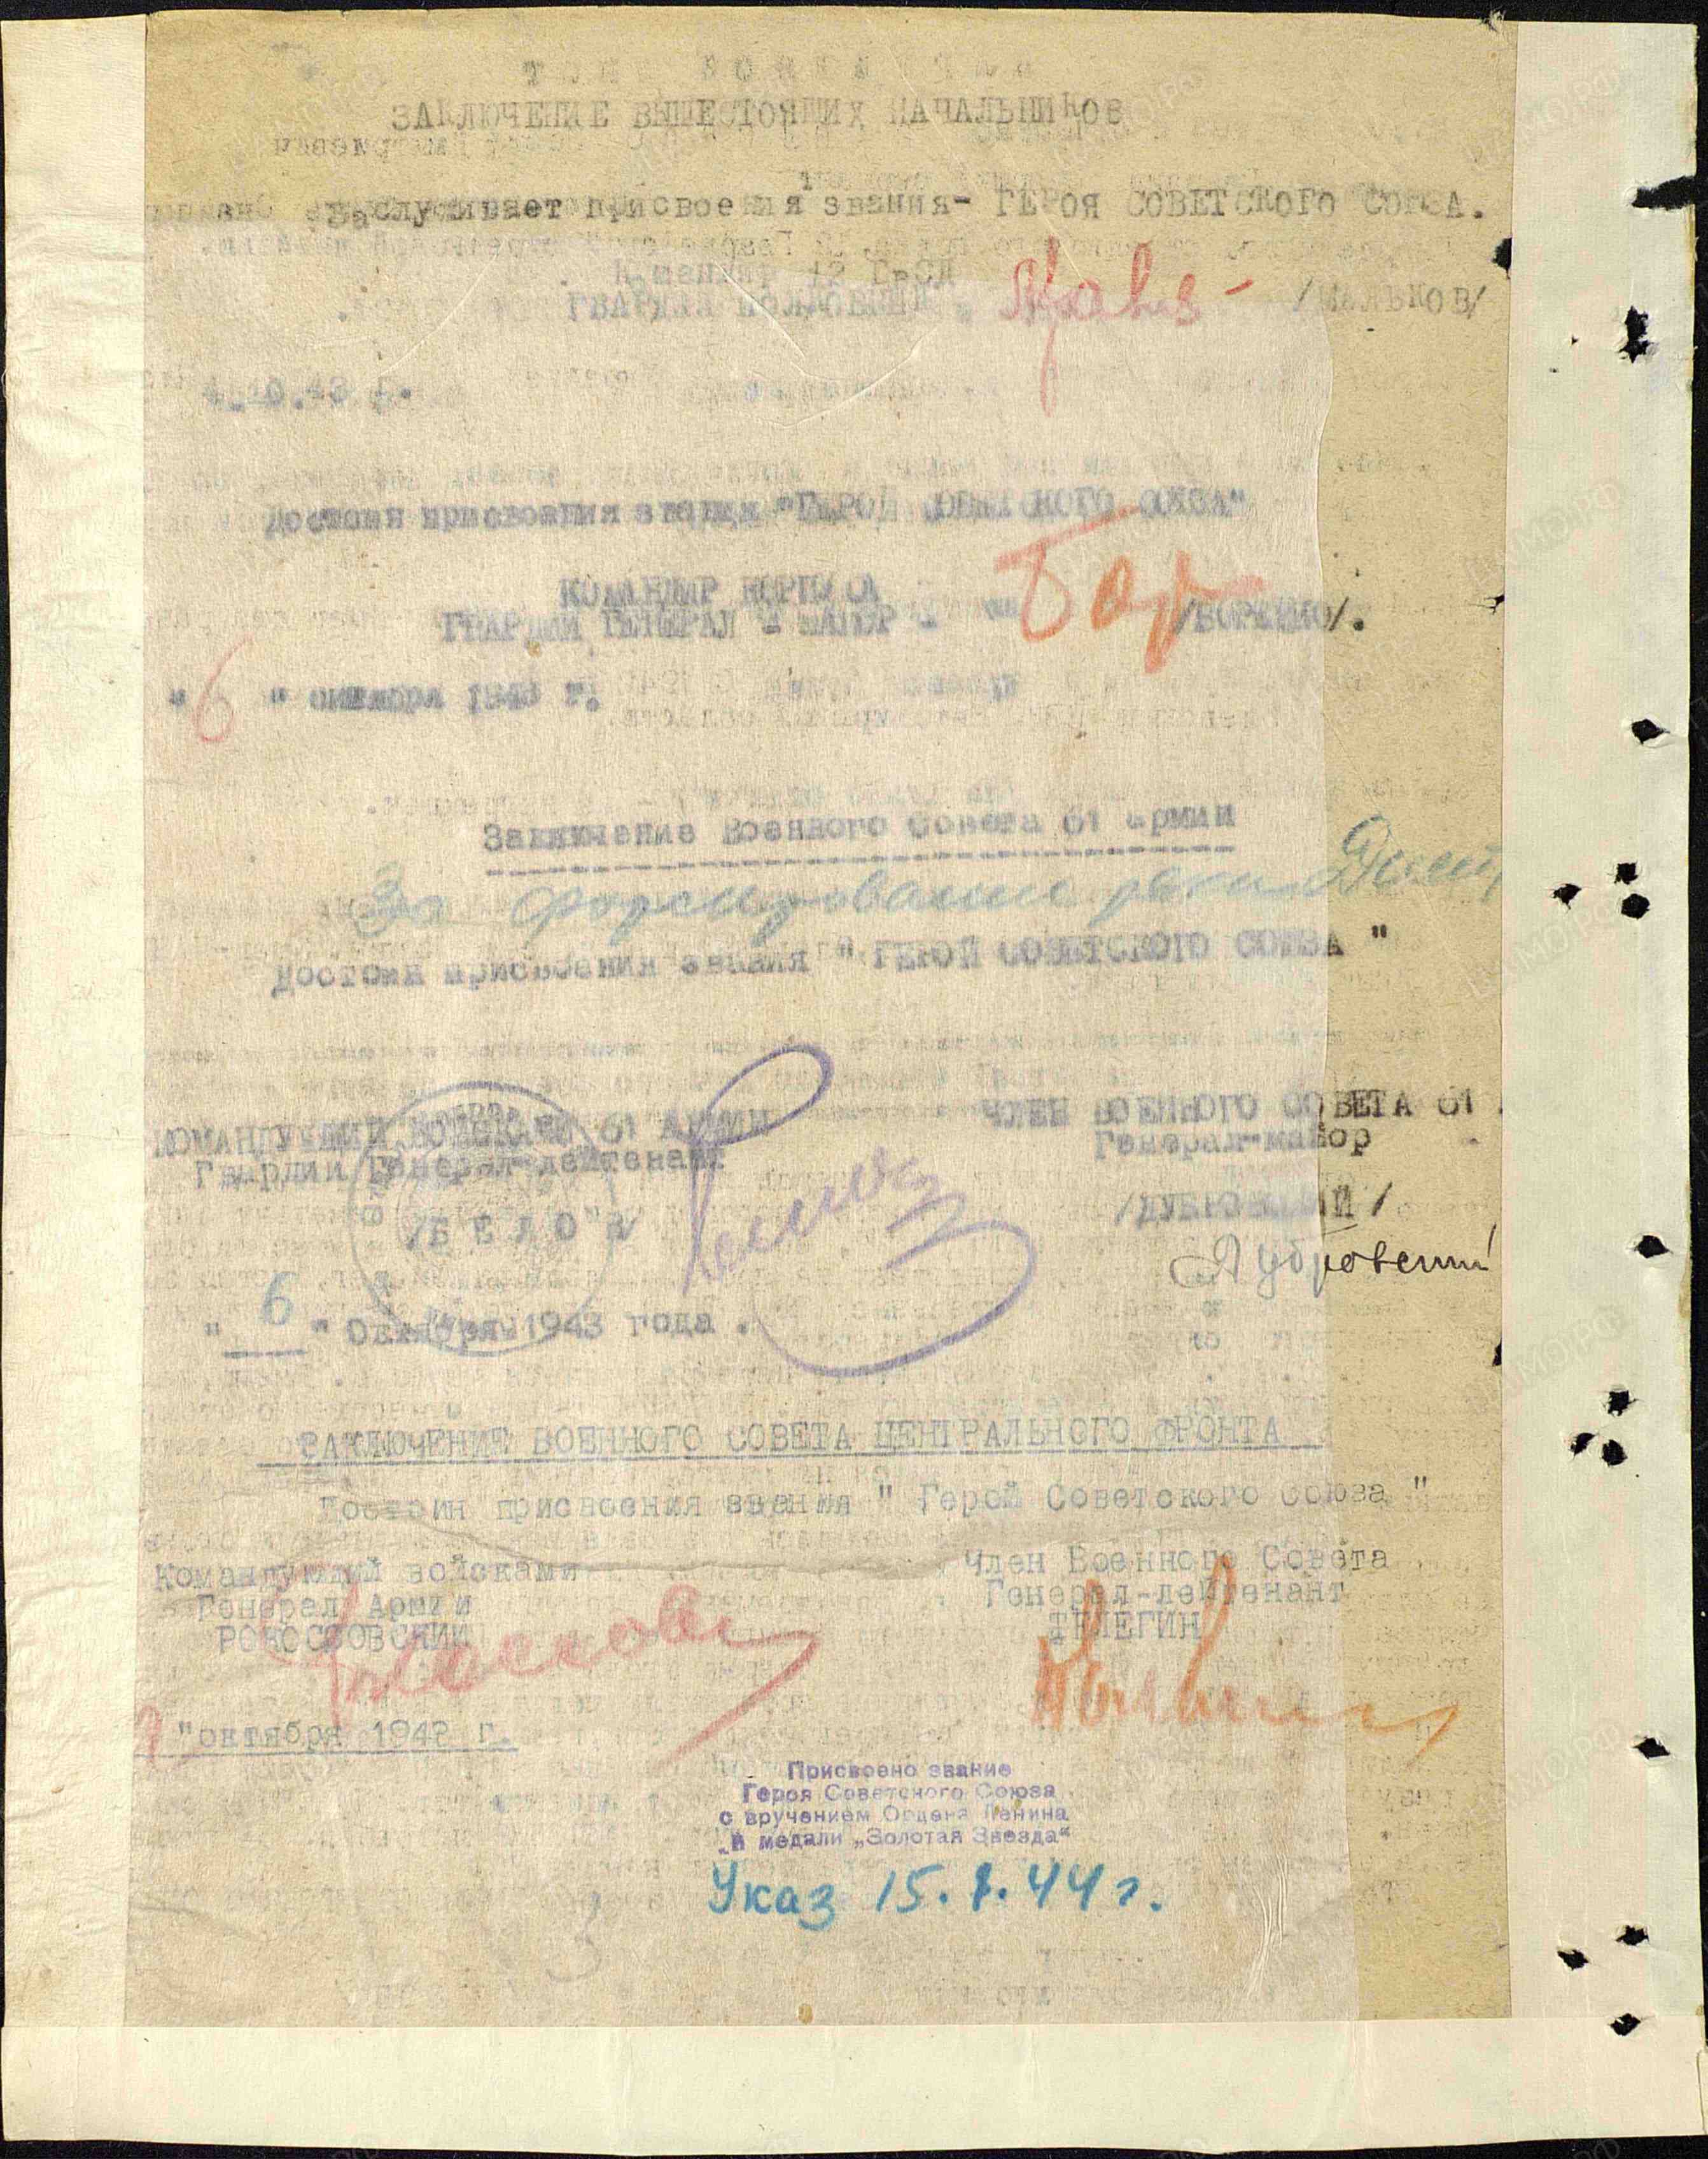 ЗАКЛЮЧЕНИЕ ВЫШЕСТОЯЩИХ НАЧАЛЬНИКОВ
Заслуживает присвоения звания- ГЕРОЯ СОВЕТСКОГО СОЮЗА.
Командир 12 Гв.СД
ГВАРДИИ ПОЛКОВНИК - /МАЛЬКОВ/
4.10.43 г.
Достоин присвоения звания "ГЕРОЙ СОВЕТСКОГО СОЮЗА"
КОМАНДИР КОРПУСА
ГВАРДИИ ГЕНЕРАЛ - МАЙОР -
"6" октября 1943 г.
Заключение Военного Совета 61 армии
За форсирование реки Днепр
Достоин присвоения звания " ГЕРОЙ СОВЕТСКОГО СОЮЗА "
КОМАНДУЮЩИЙ ВОЙСКАМИ 61 АРМИИ
Гвардии Генерал-лейтенант
/БЕЛОВ/
ЧЛЕН ВОЕННОГО СОВЕТА 61
Генерал-майор
/ДУБРОВСКИЙ/
Дубровский
"6" Октября 1943 года.
ЗАКЛЮЧЕНИЕ ВОЕННОГО СОВЕТА ЦЕНТРАЛЬНОГО ФРОНТА
Достоин присвоения звания " Герой Советского Союза "
Командующий войсками
Генерал Армии
РОКОССОВСКИЙ
Член Военного Совета
Генерал-лейтенант
ТЕЛЕГИН
"октября 1943 г.
Присвоено звание
Героя Советского Союза
с вручением Ордена Ленина
и медали „Золотая Звезда“
Указ 15.1.44 г.